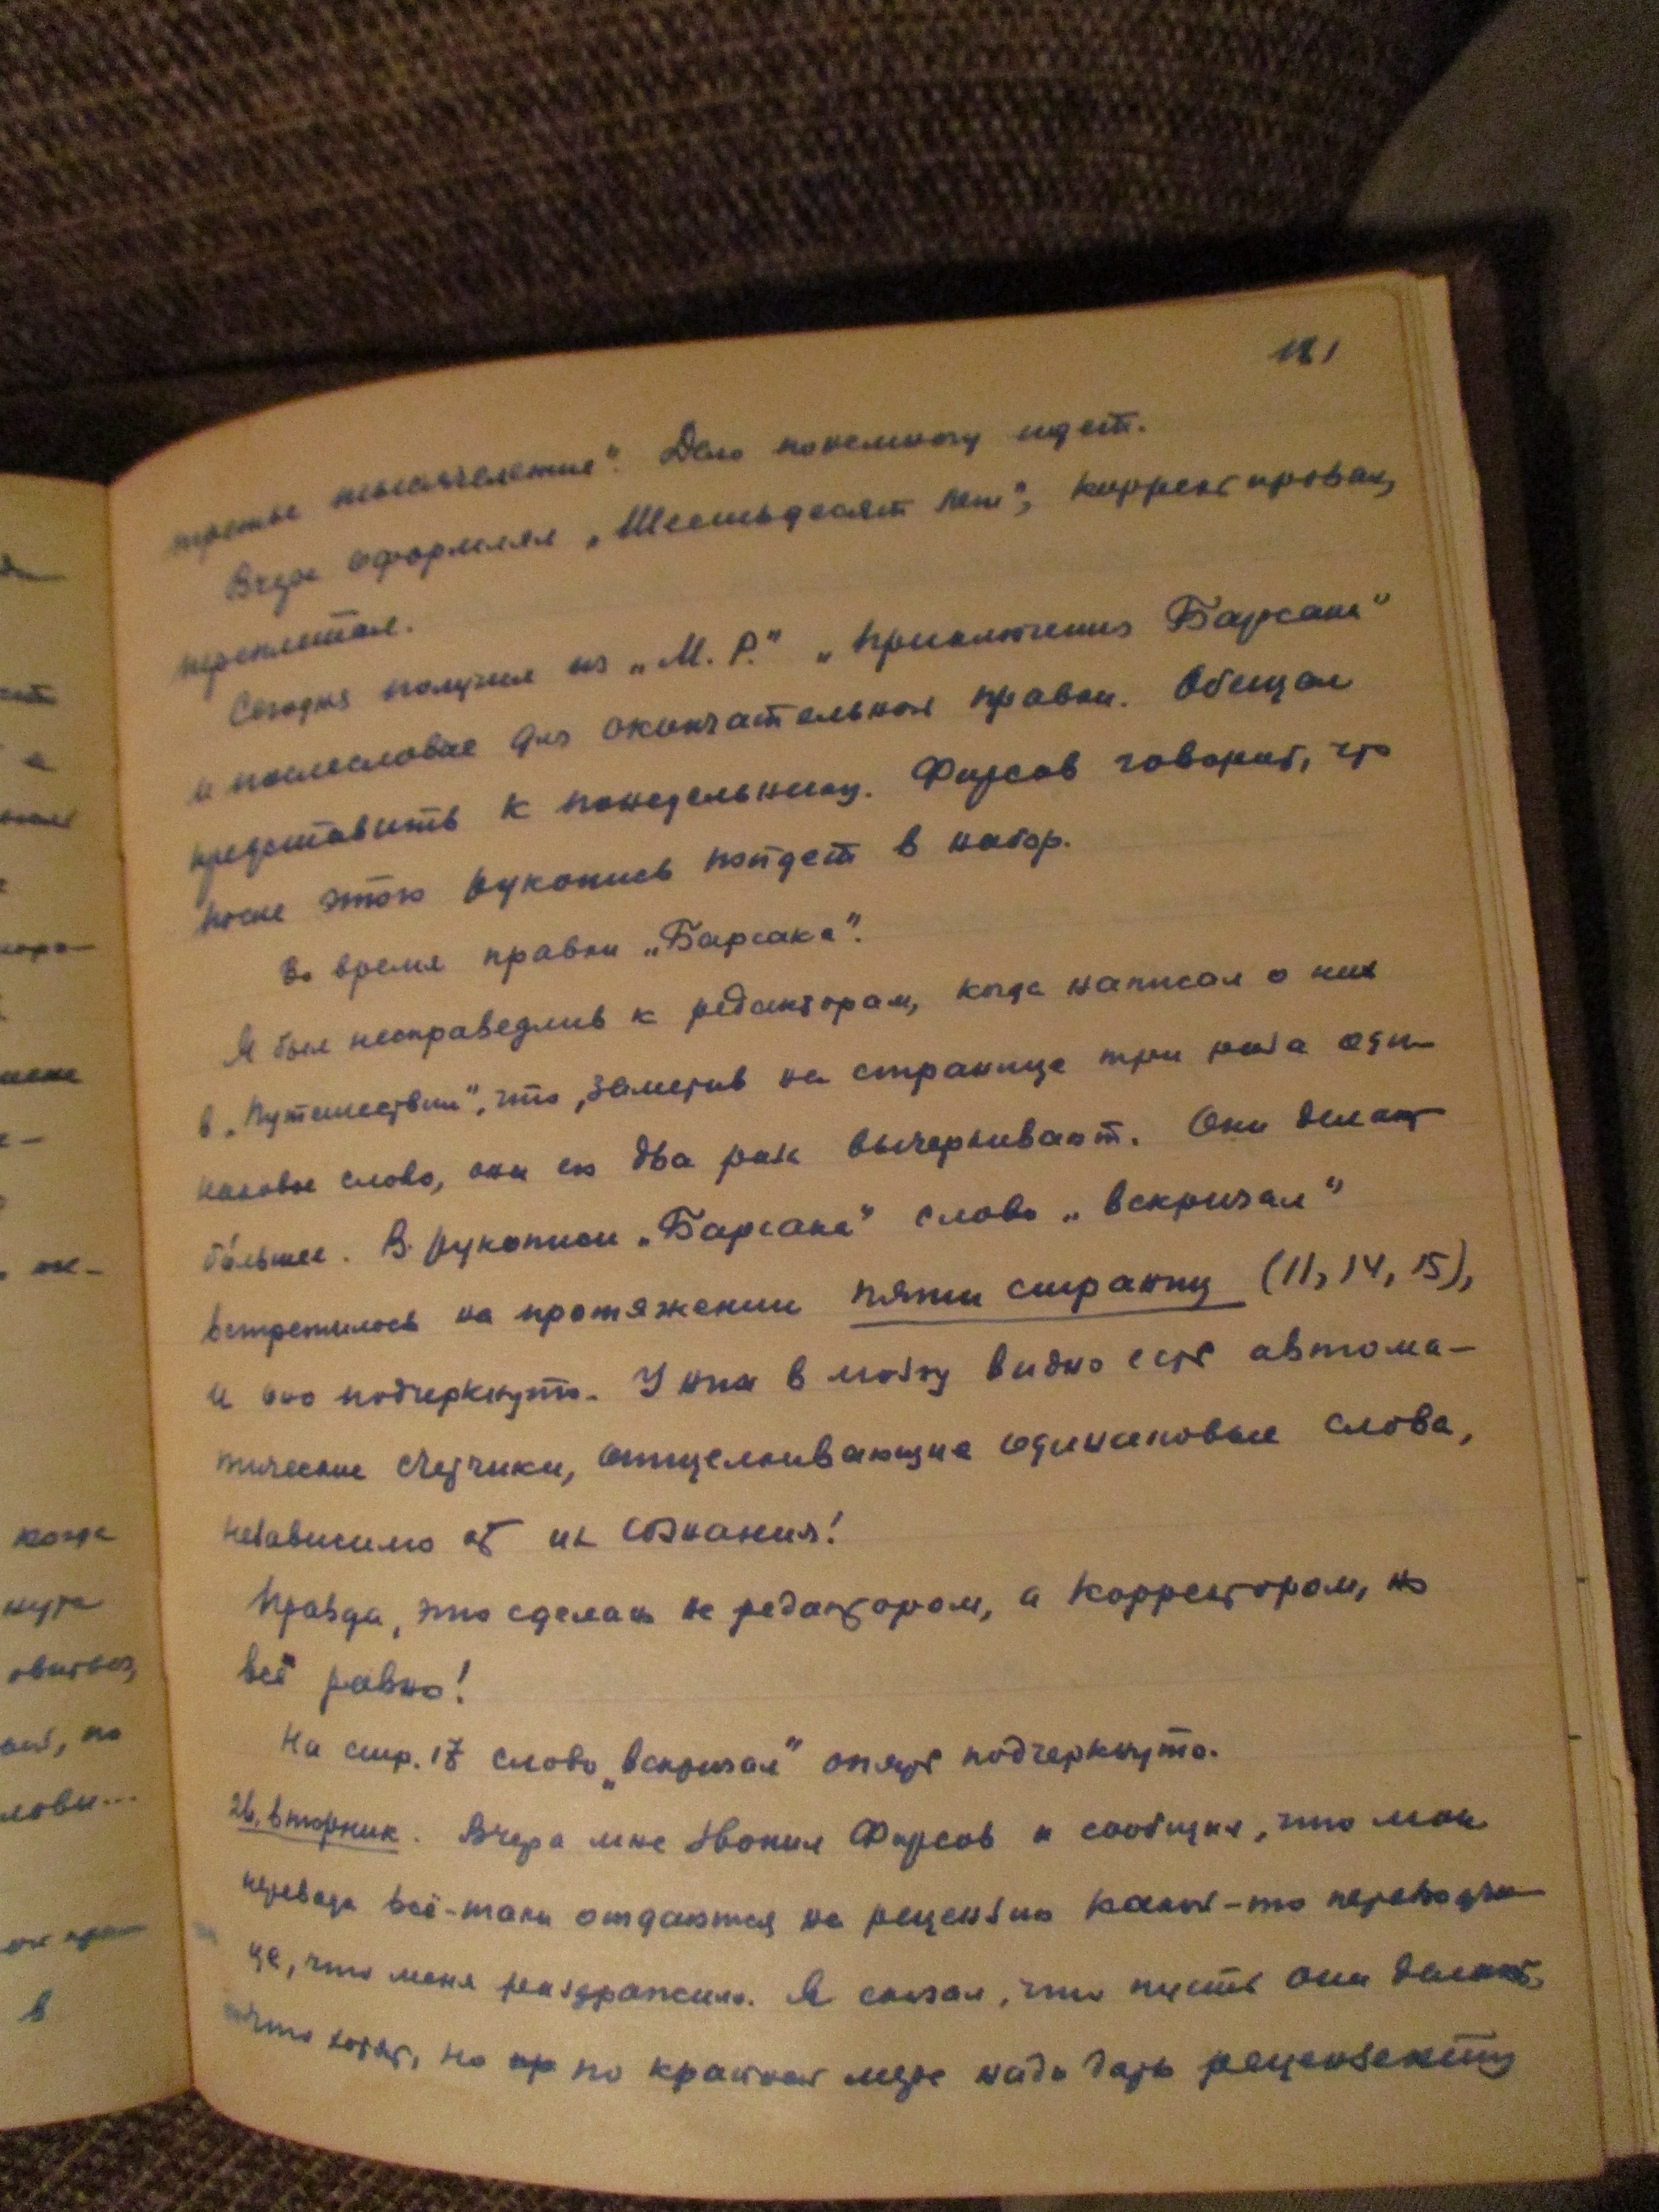 181
третье тысячелетие". Дело понемногу идет.
Вчера оформлял „Шестьдесят лет", корректировал,
переплетал.
Сегодня получил из „М. Р." „Приключения Барсака"
и послесловие для окончательной правки. Обещал
представить к понедельнику. Фирсов говорит, что
после этого рукопись пойдет в набор.
Во время правки „Барсака".
Я был несправедлив к редакторам, когда написал о них
в „Путешествии", что, заметив на странице три раза оди-
наковое слово, они его два раза вычеркивают. Они делают
бо́льшее. В рукописи „Барсака" слово „вскричал"
встретилось на протяжении пяти страниц (11, 14, 15),
и оно подчеркнуто. У них в мозгу видно есть автома-
тические счетчики, отщелкивающие одинаковые слова,
независимо от их сознания!
Правда, это сделано не редактором, а корректором, но
всё равно!
На стр. 17 слово „вскричал" опять подчеркнуто.
26. вторник. Вчера мне звонил Фирсов и сообщил, что мои
переводы всё-таки отдаются на рецензию какой-то переводчи-
це, что меня раздражило. Я сказал, что пусть они делают,
что хотят, но по крайней мере надо дать рецензенту
когда
в